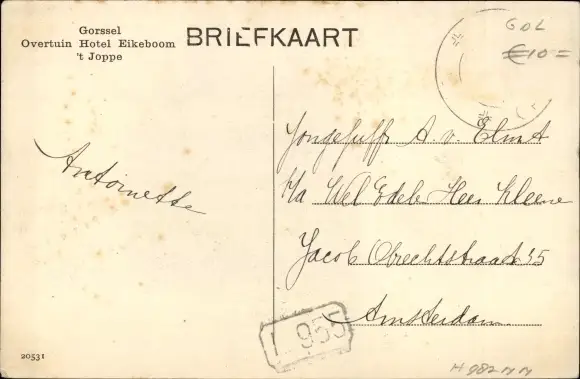 Gorssel
Overtuin Hotel Eikeboom
't Joppe
BRIEFKAART
GDL
€10=
Antoinette
Jongejuffr A. v. Elmt
p/a Wel Edele Heer Kleene
Jacob Obrechtstraat 35
Amsterdam
L 955
20531
H 982 NN